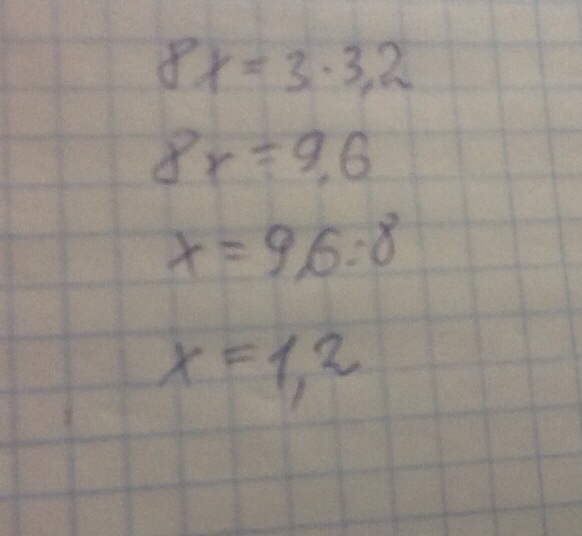 8x = 3 · 3,2
8x = 9,6
x = 9,6 : 8
x = 1,2